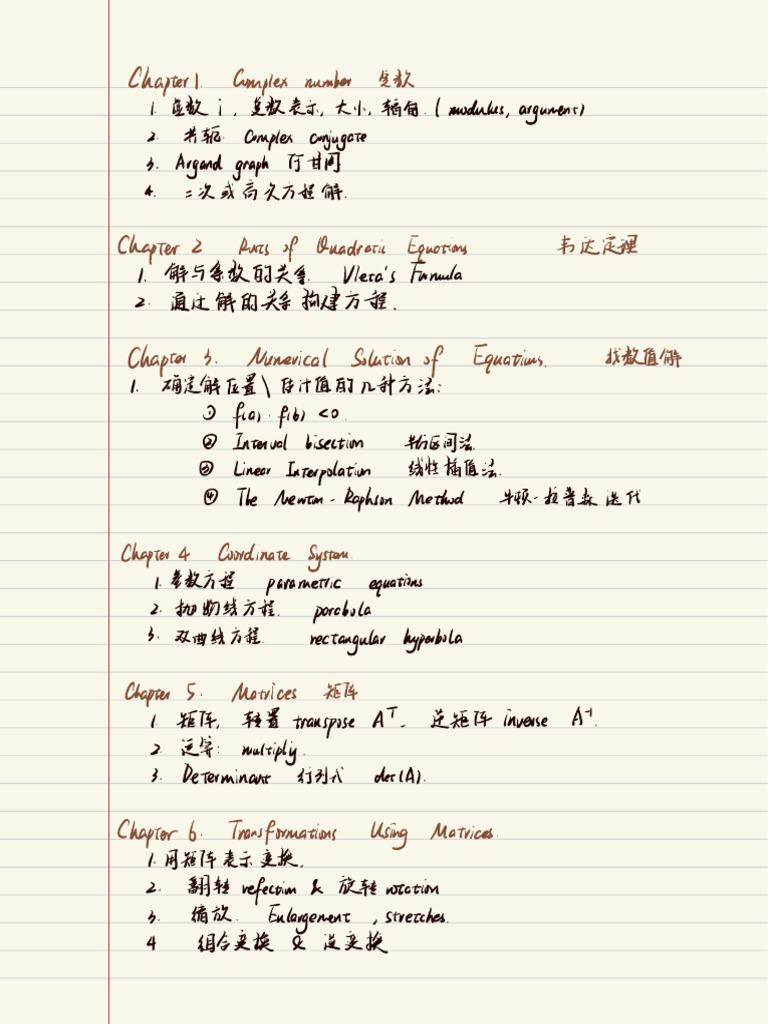 Chapter 1. Complex number 复数
1. 虚数 i, 复数表示, 大小, 辐角. (modulus, argument)
2. 共轭 Complex conjugate
3. Argand graph 阿甘图
4. 二次或高次方程解.
Chapter 2 Roots of Quadratic Equations 韦达定理
1. 解与系数的关系. Vieta's Formula
2. 通过解的关系构建方程.
Chapter 3. Numerical Solution of Equations. 找数值解
1. 确定解位置\估计值的几种方法:
① f(a)·f(b) <0.
② Interval bisection 半分区间法.
③ Linear Interpolation 线性插值法.
④ The Newton-Raphson Method 牛顿-拉普森迭代
Chapter 4 Coordinate System.
1. 参数方程 parametric equations
2. 抛物线方程. parabola
3. 双曲线方程. rectangular hyperbola
Chapter 5. Matrices 矩阵
1. 矩阵, 转置 transpose Aᵀ, 逆矩阵 inverse A⁻¹.
2. 运算: multiply.
3. Determinant 行列式 det(A).
Chapter 6. Transformations Using Matrices.
1. 用矩阵表示变换.
2. 翻转 refection & 旋转 rotation
3. 缩放. Enlargement, stretches.
4 组合变换 & 逆变换